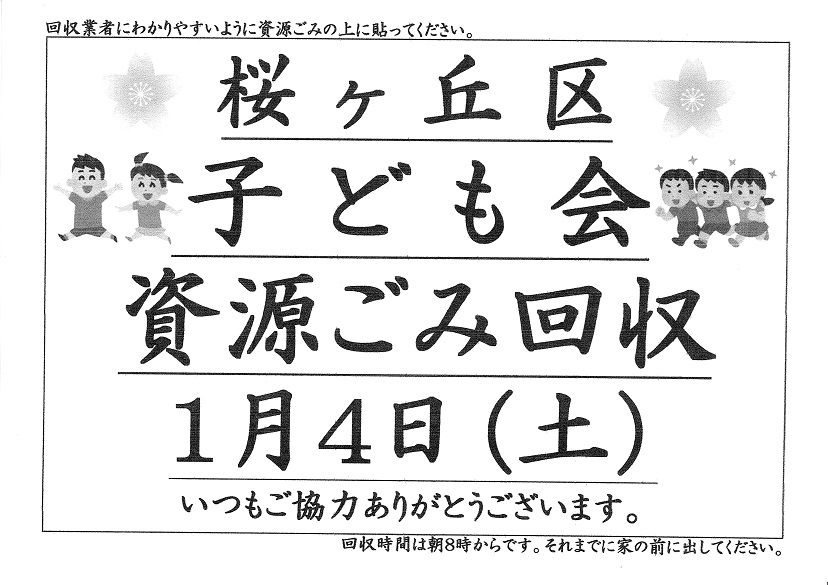 回収業者にわかりやすいように資源ごみの上に貼ってください。
桜ヶ丘区
子ども会
資源ごみ回収
1月4日(土)
いつもご協力ありがとうございます。
回収時間は朝8時からです。それまでに家の前に出してください。